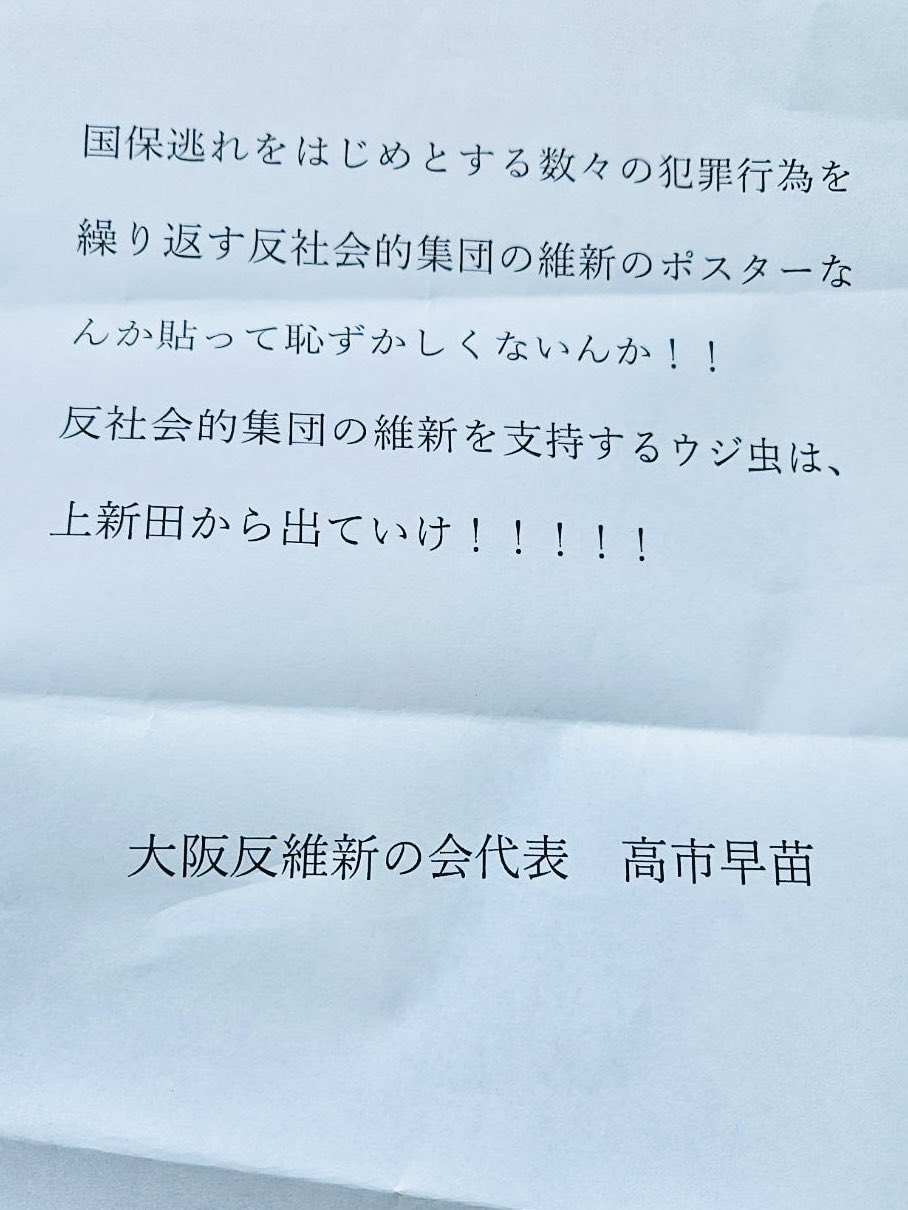 国保逃れをはじめとする数々の犯罪行為を
繰り返す反社会的集団の維新のポスターな
んか貼って恥ずかしくないんか！！
反社会的集団の維新を支持するウジ虫は、
上新田から出ていけ！！！！！
大阪反維新の会代表　高市早苗